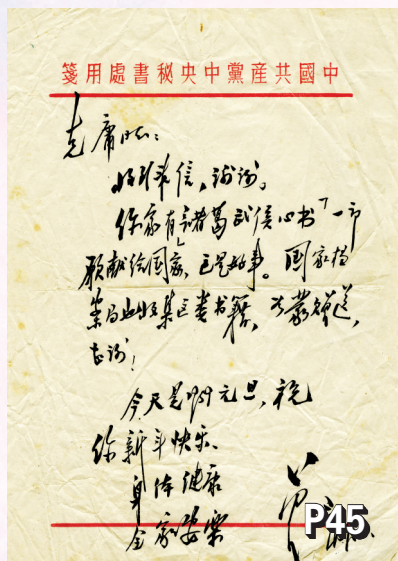 中國共產黨中央秘書處用箋
克庸同志:
收到来信,谢谢。
你家有「诸葛武侯心书」一部
愿献给国家,这是好事。国家档
案局收集这类书籍,蒙赠送,
谢!
今天是元旦,祝
你新年快乐、
身体健康
全家安乐
P45